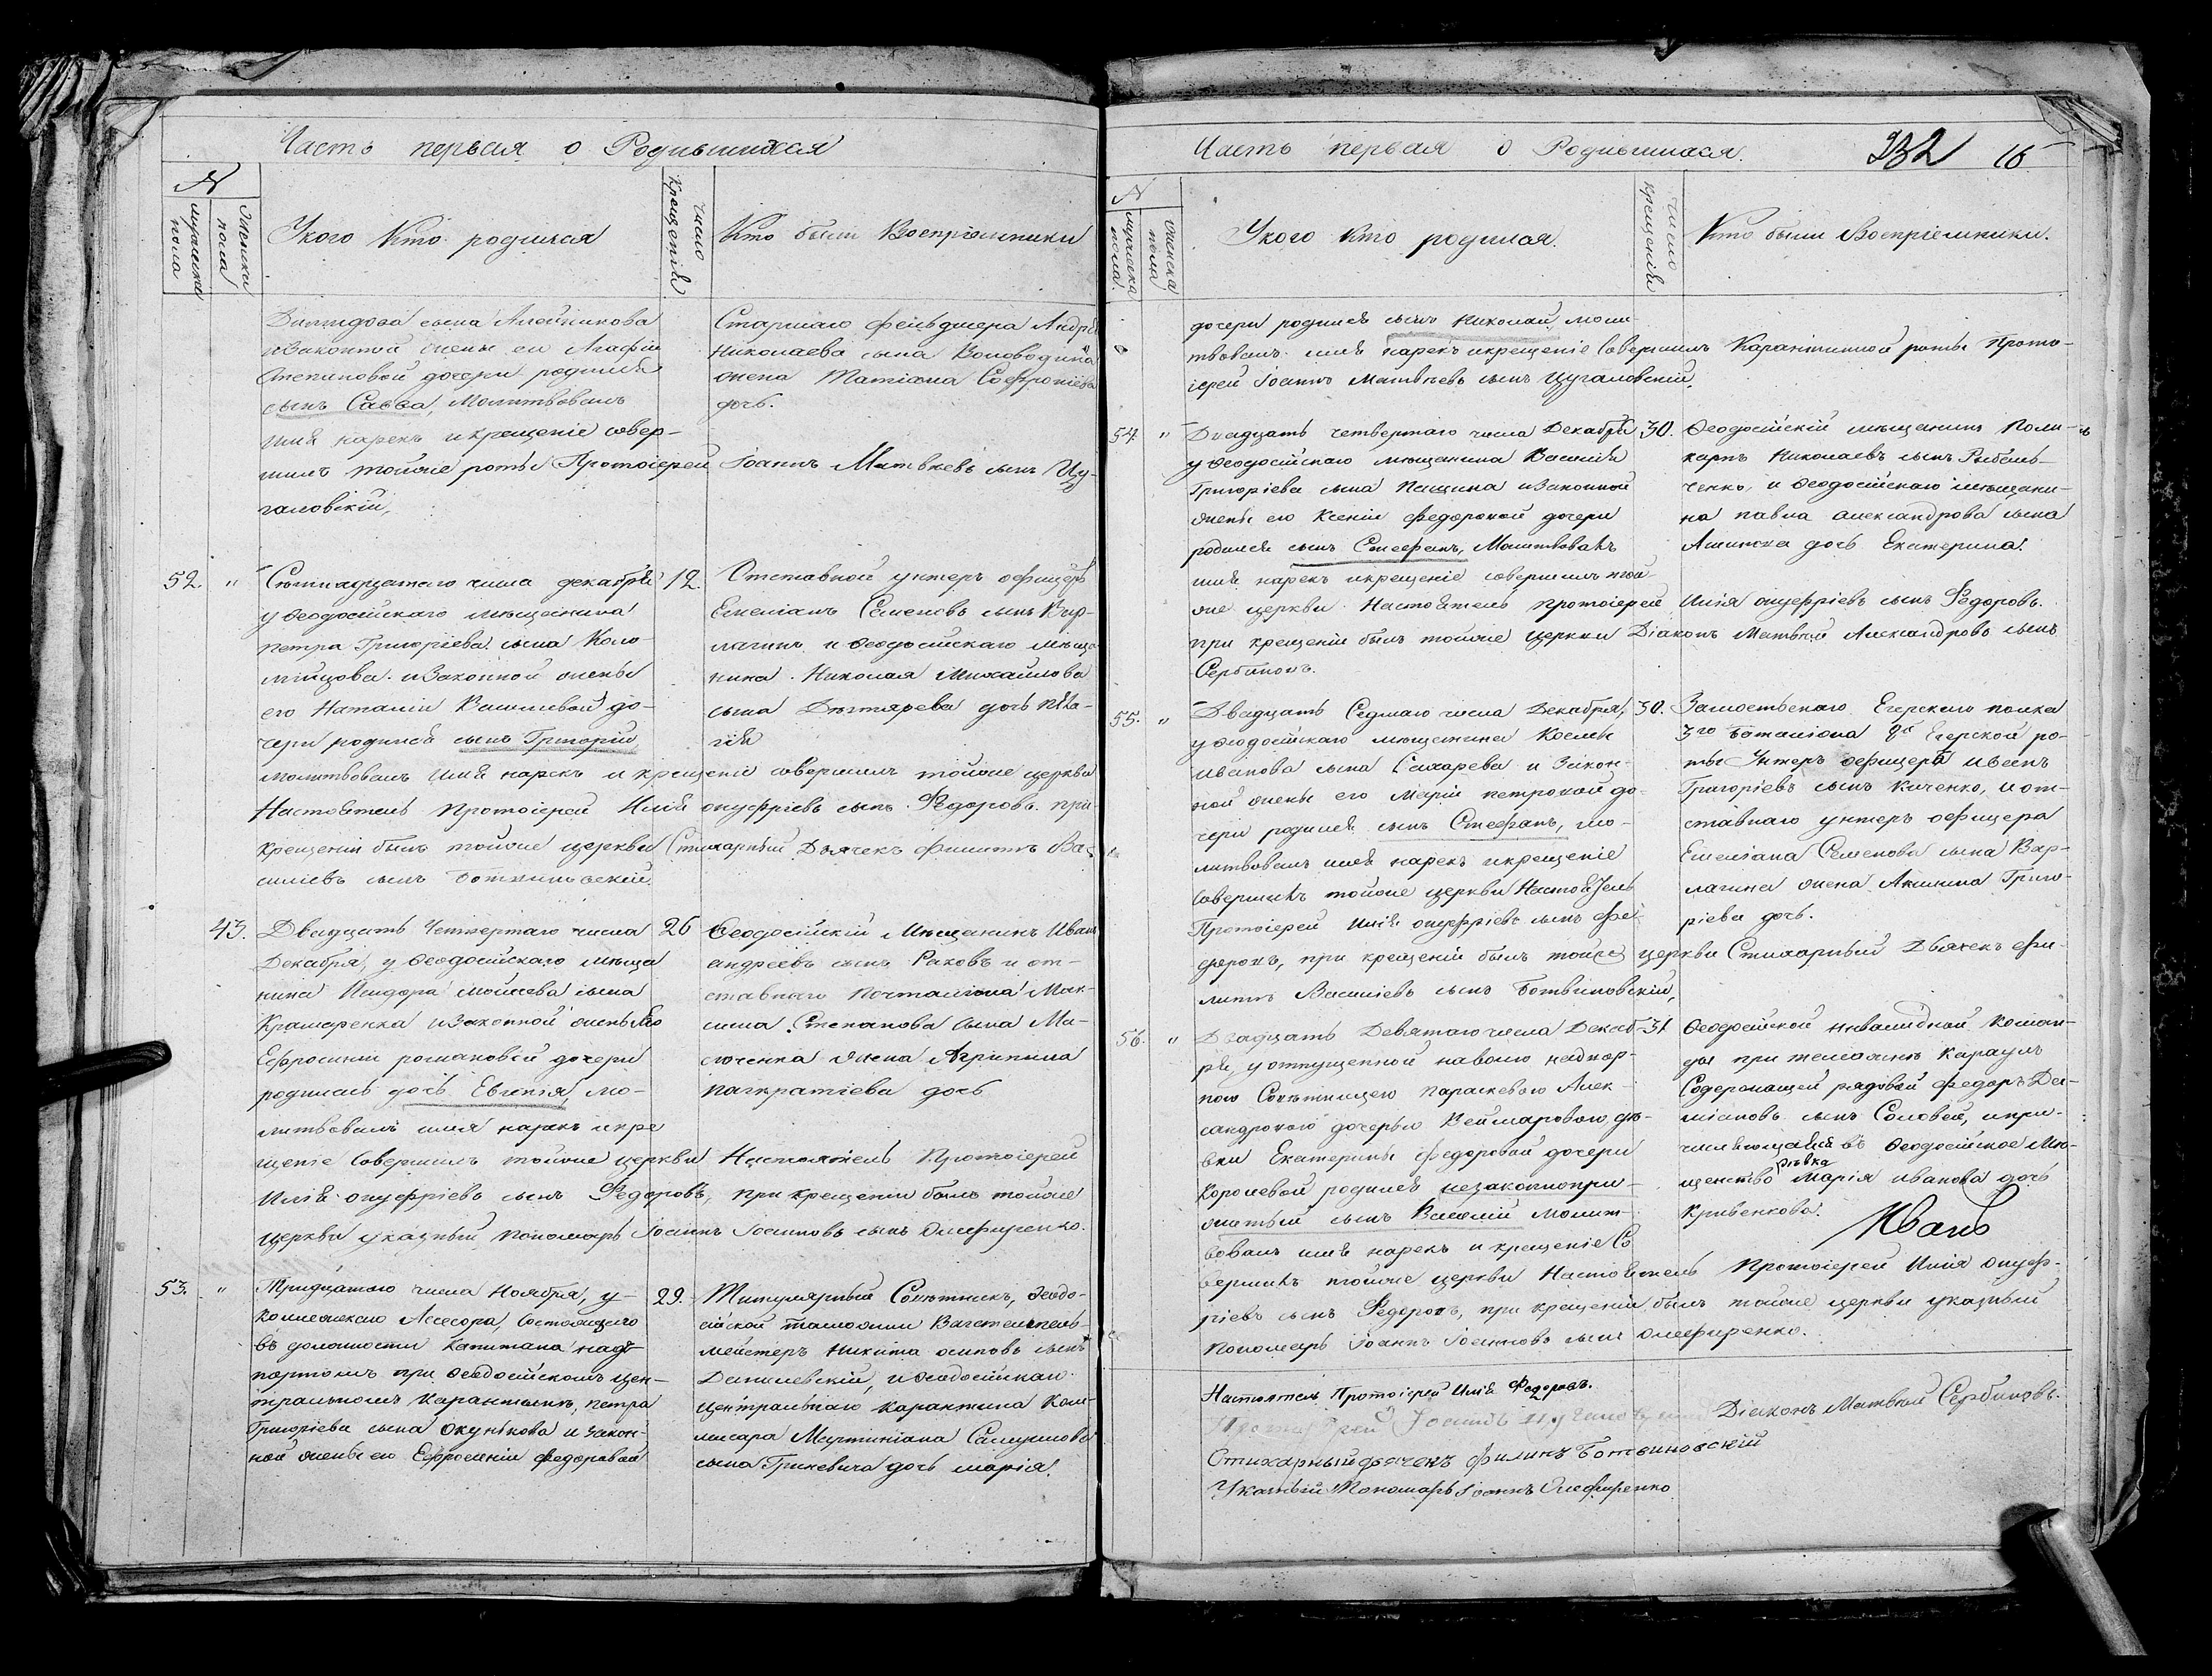 Часть первая о Родившихся
№
мужеска пола
женска пола
У кого Кто родился
число крещенія
Кто были Воспріемники
сына
и законной жены его Агафіи
Степановой дочери родился
сынъ Савва, Молитвовалъ
имя нарекъ и крещеніе совер-
шилъ тойже роты Протоіерей Іоаннъ Матвѣевъ сынъ Цу-
галовскій,
Старшаго фельдшера Андрея
Николаева сына
жена Татіана Софроніева
дочь.
52. " числа декабря 12.
у Ѳеодосійскаго мѣщанина
Петра Григоріева сына Коло-
мійцова и Законной жены
его Наталіи Васильевой до-
чери родился сынъ Григорій
молитвовалъ имя нарекъ и крещеніе совершилъ тойже церкви
Настоятель Протоіерей Илія онуфріевъ сынъ Федоровъ. при
крещеніи былъ тойже церкви Стихарный Дьячекъ Филиппъ Ва-
силіевъ сынъ Ботвиновскій.
Отставной унтеръ офицеръ
Емеліанъ Семеновъ сынъ Вар-
лагинъ и Ѳеодосійскаго мѣща-
нина Николая Михайлова
сына Дегтярева дочь Пела-
гія
43. Двадцать Четвертаго числа 26
Декабря, у Ѳеодосійскаго мѣща
нина Исидора Моисеева сына
Крамаренка и Законной жены его
Ефросиніи романовой дочери
родилась дочь Евгенія, мо-
литвовалъ имя нарекъ и кре
щеніе Совершилъ тойже церкви Настоятель Протоіерей
Илія онуфріевъ сынъ Федоровъ, при крещеніи былъ тойже
церкви указный Пономарь Іоаннъ Іоанновъ сынъ Олефиренко.
Ѳеодосійскій Мѣщанинъ Иванъ
андреевъ сынъ Раковъ и от-
ставнаго Почталіона Мак-
сима Степанова сына Ма-
сюченка жена Агрипина
панкратіева дочь
53. " Тридцатаго числа Ноября, у 29.
Коллежскаго Асесора, Состоящаго
въ должности Капитана надъ
портомъ при Ѳеодосійскомъ Цен-
тральномъ Карантинѣ, Петра
Григоріева сына Окунькова и закон-
ной жены его Ефросиніи Федоровой
Титулярный Совѣтникъ, Ѳеодо-
сійской таможни
мейстеръ Никита осиповъ сынъ
Данилевскій, и Ѳеодосійскаго
Центральнаго карантина Ком-
мисара Мартиніана Самуилова
сына Гриневича дочь марія.
Часть первая о Родившихся.
232 16
№
мужеска пола
женска пола
У кого Кто родился.
число крещенія
Кто были Воспріемники.
дочери родился сынъ Николай, моли-
твовалъ имя нарекъ и крещеніе Совершилъ Карантинной роты Прото-
іерей Іоаннъ Матвѣевъ сынъ Цугаловскій.
54. " Двадцать четвертаго числа Декабря 30.
у Ѳеодосійскаго мѣщанина Василія
Григоріева сына Пащина и Законной
жены его Ксеніи Федоровой дочери
родился сынъ Стефанъ, Молитвовалъ
имя нарекъ и крещеніе совершилъ той-
же церкви Настоятель Протоіерей Илія онуфріевъ сынъ Федоровъ.
при крещеніи былъ тойже церкви Діаконъ Матвей Александровъ сынъ
Сербиновъ.
Ѳеодосійскій мѣщанинъ Поли-
карпъ Николаевъ сынъ Рыбаль-
ченко, и Ѳеодосійскаго мѣщани-
на Павла александрова сына
дочь Екатерина.
55. " Двадцать Седмаго числа Декабря, 30.
у Ѳеодосійскаго мѣщанина Космы
Иванова сына Сахарева и Закон-
ной жены его Маріи петровой до-
чери родился сынъ Стефанъ, мо-
литвовалъ имя нарекъ и крещеніе
Совершилъ тойже церкви Настоятель
Протоіерей Илія онуфріевъ сынъ Фе-
доровъ, при крещеніи былъ тойже церкви Стихарный Дьячекъ Фи-
липпъ Василіевъ сынъ Ботвиновскій,
Замостьскаго Егерскаго полка
3го Баталіона Егерской ро-
ты Унтеръ офицеръ Иванъ
Григоріевъ сынъ Киченко, и от-
ставнаго унтеръ офицера
Емеліана Семенова сына Вар-
лагина жена Акилина Григо-
ріева дочь.
56. " Двадцать Девятаго числа Декаб- 31.
ря, у отпущенной на волю надвор-
ною Совѣтницею Параскевою Алек-
сандровою дочерью Веймаровою дѣ-
вки Екатерины Федоровой дочери
Королевой родился незаконнопри-
житый сынъ Василій молит-
вовалъ имя нарекъ и крещеніе Со
вершилъ тойже церкви Настоятель Протоіерей Илія Онуф-
ріевъ сынъ Федоровъ, при крещеніи былъ тойже церкви указный
Пономарь Іоаннъ Іоанновъ сынъ Олефиренко.
Ѳеодосійской инвалидной Коман-
ды при караулъ
Содержащей рядовой Федоръ Да-
міановъ сынъ Соловей, и при-
числяющаяся въ Ѳеодосійское Мѣ-
щанство дѣвка Марія иванова дочь
Кривенкова.
Настоятель Протоіерей Илія Федоровъ.
Протоіерей Іоаннъ Цугаловскій
Діаконъ Матвей Сербиновъ.
Стихарный дьячекъ Филипъ Ботвиновскій
Указный Пономарь Іоаннъ Олефиренко